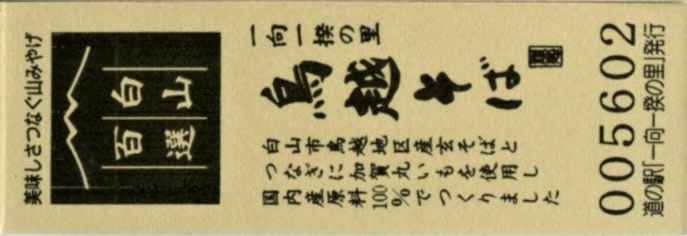 美味しさつなぐ山みやげ
白山
百選
一向一揆の里
鳥越そば
白山市鳥越地区産玄そばと
つなぎに加賀丸いもを使用し
国内産原料100%でつくりました
005602
道の駅「一向一揆の里」発行